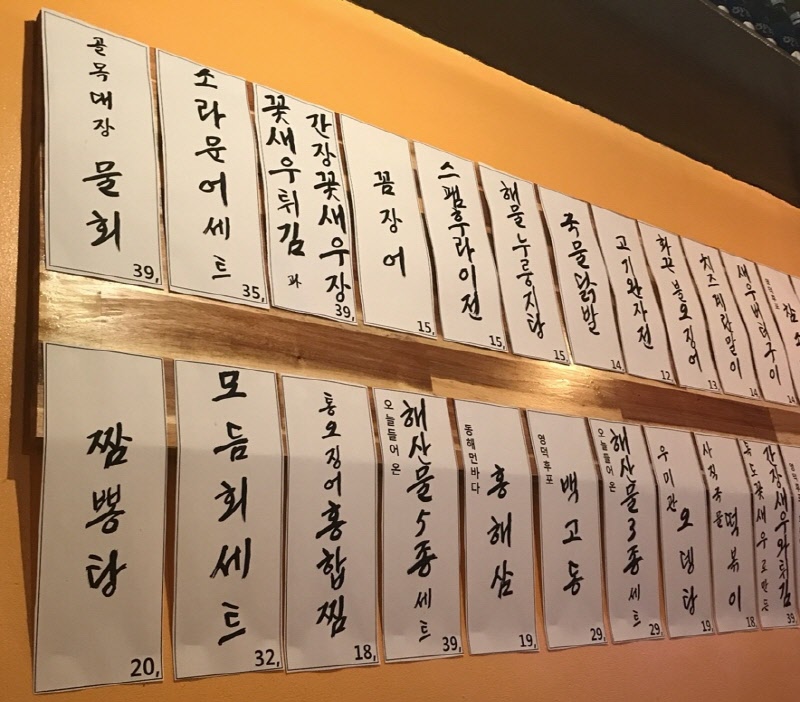 골목대장 물회
39,
소라문어세트
35,
간장꽃새우장과
꽃새우튀김
39,
꼼장어
15,
스팸후라이전
15,
해물누룽지탕
15,
국물닭발
14,
고기완자전
12,
화끈불오징어
13,
치즈계란말이
14,
새우버터구이
14,
짬뽕탕
20,
모듬회세트
32,
통오징어홍합찜
18,
오늘들어온
해산물5종세트
39,
동해먼바다
홍해삼
19,
영덕후포
백고동
29,
오늘들어온
해산물3종세트
29,
우미관
오뎅탕
19,
사직국물
떡볶이
18,
간장새우와튀김
독도꽃새우로만든
39,